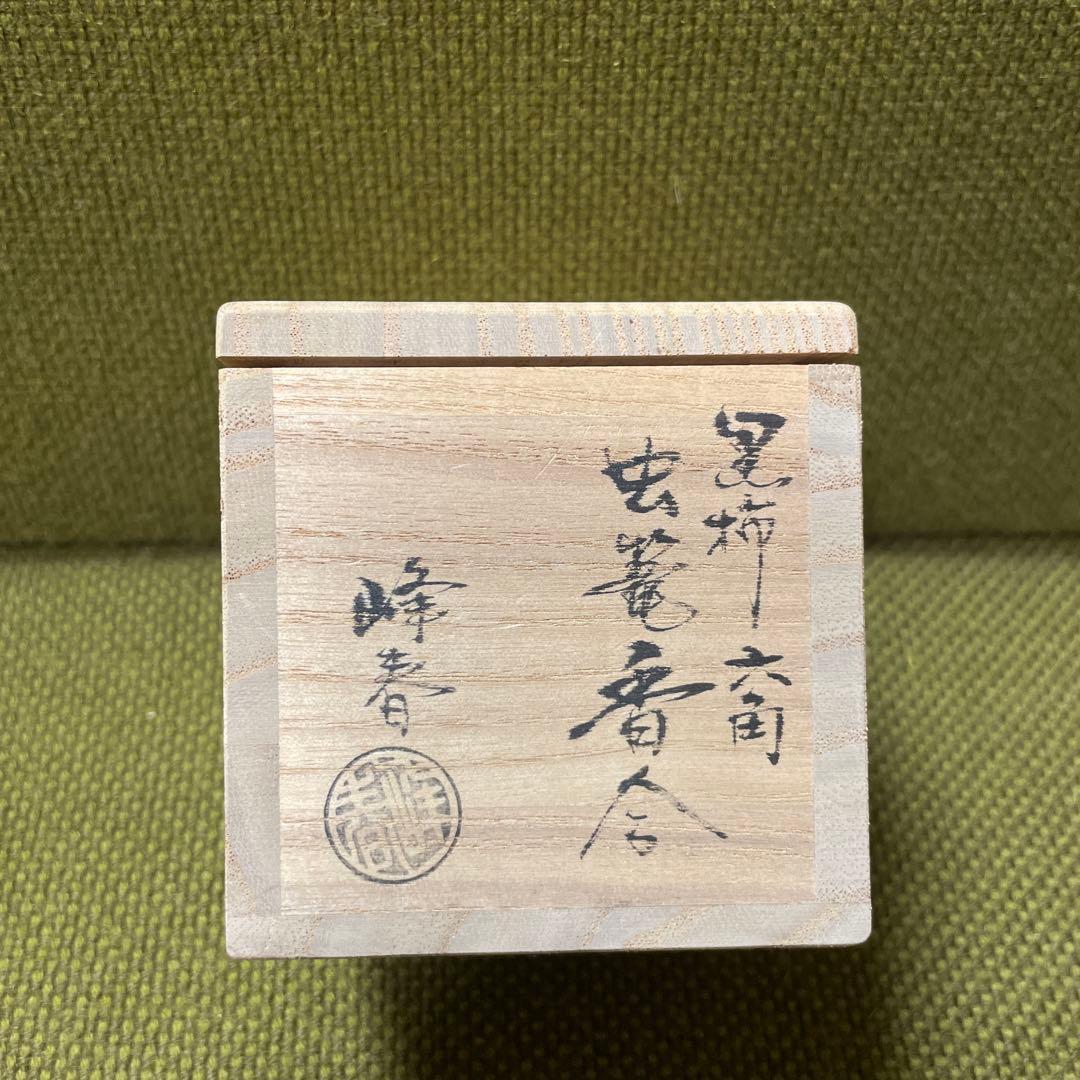 黒柿 六角
虫籠香合
峰春